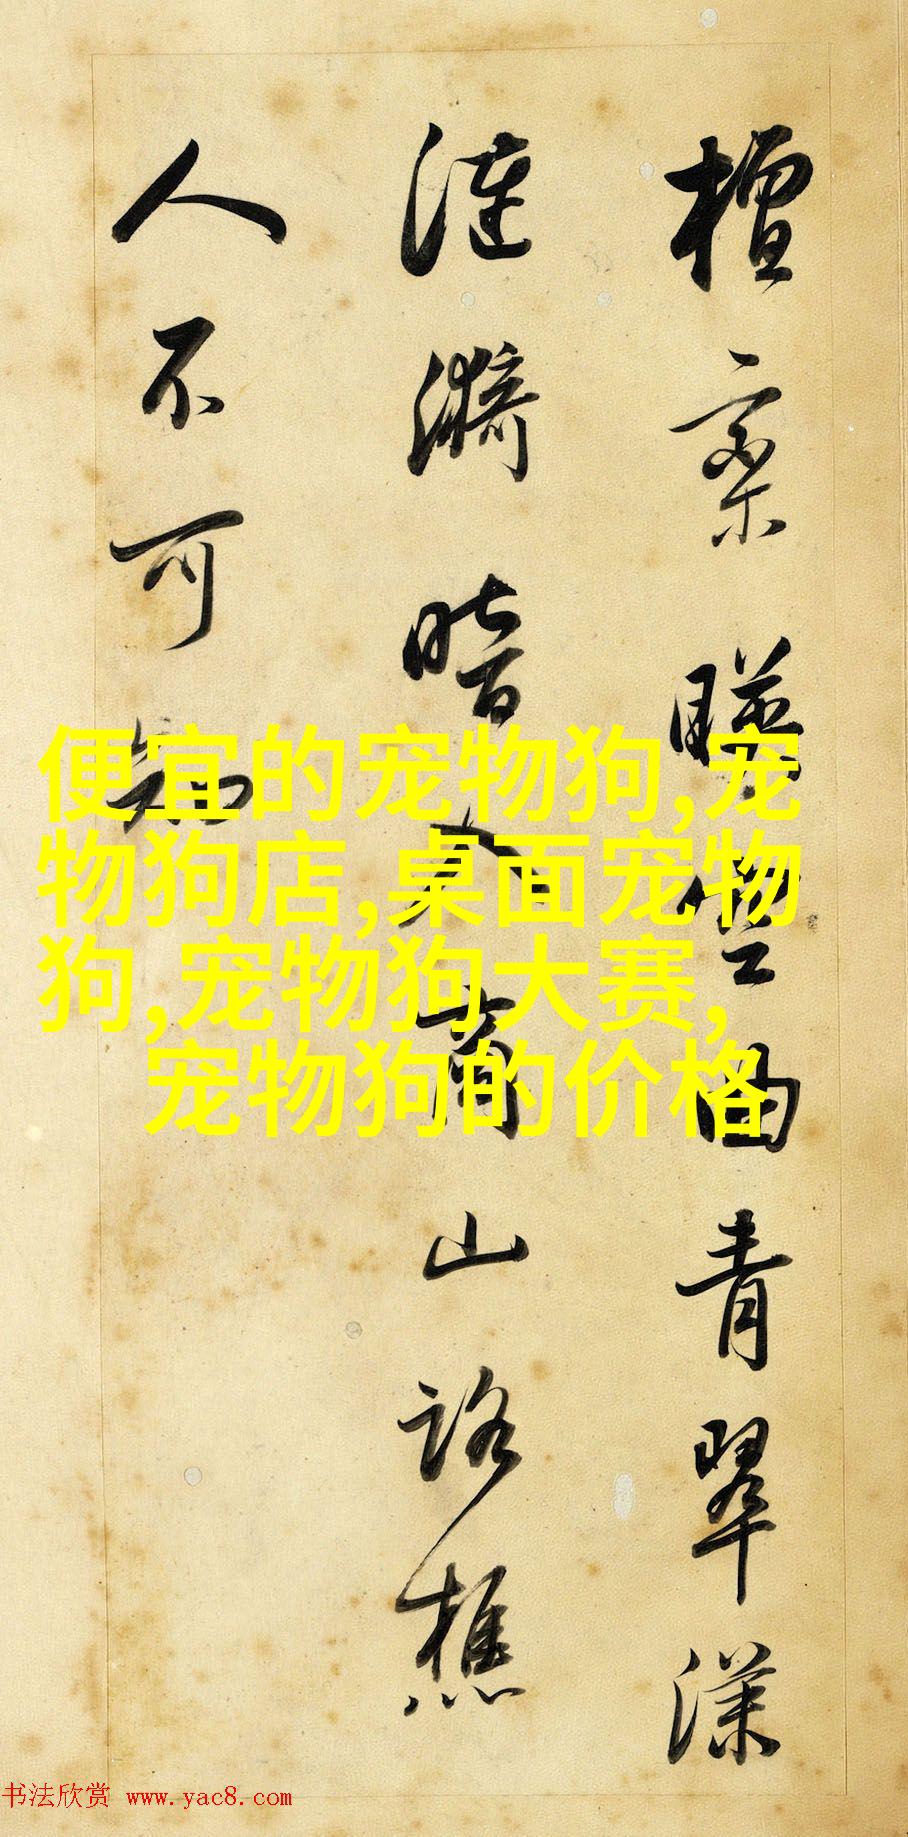 檀欒暎空曲青翠漾
漣漪暗入商山路樵
人不可知
便宜的宠物狗,宠
物狗店,桌面宠物
狗,宠物狗大赛,
宠物狗的价格
书法欣赏 www.yac8.com